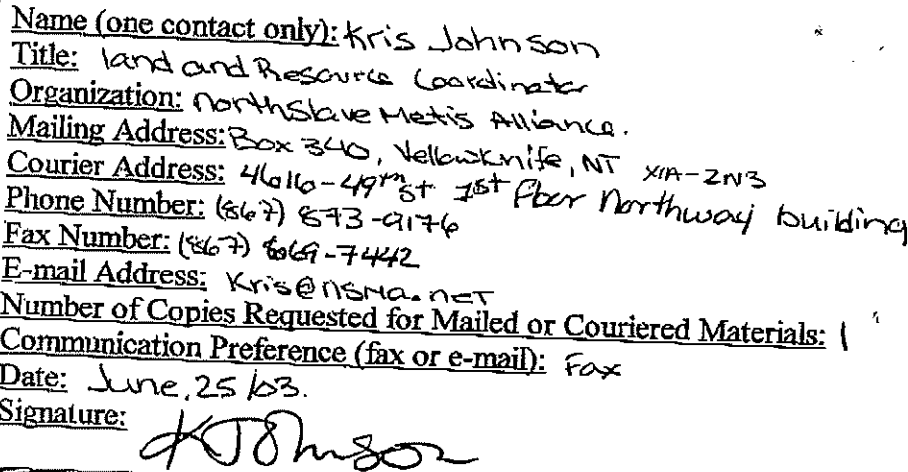 Name (one contact only): Kris Johnson
Title: land and Resource Coordinator
Organization: North Slave Metis Alliance.
Mailing Address: Box 340, Yellowknife, NT X1A-2N3
Courier Address: 4616-49th st 1st Floor Northway building
Phone Number: (867) 873-9176
Fax Number: (867) 669-7442
E-mail Address: Kris@nsma.net
Number of Copies Requested for Mailed or Couriered Materials: 1
Communication Preference (fax or e-mail): Fax
Date: June, 25/03.
Signature: KJohnson